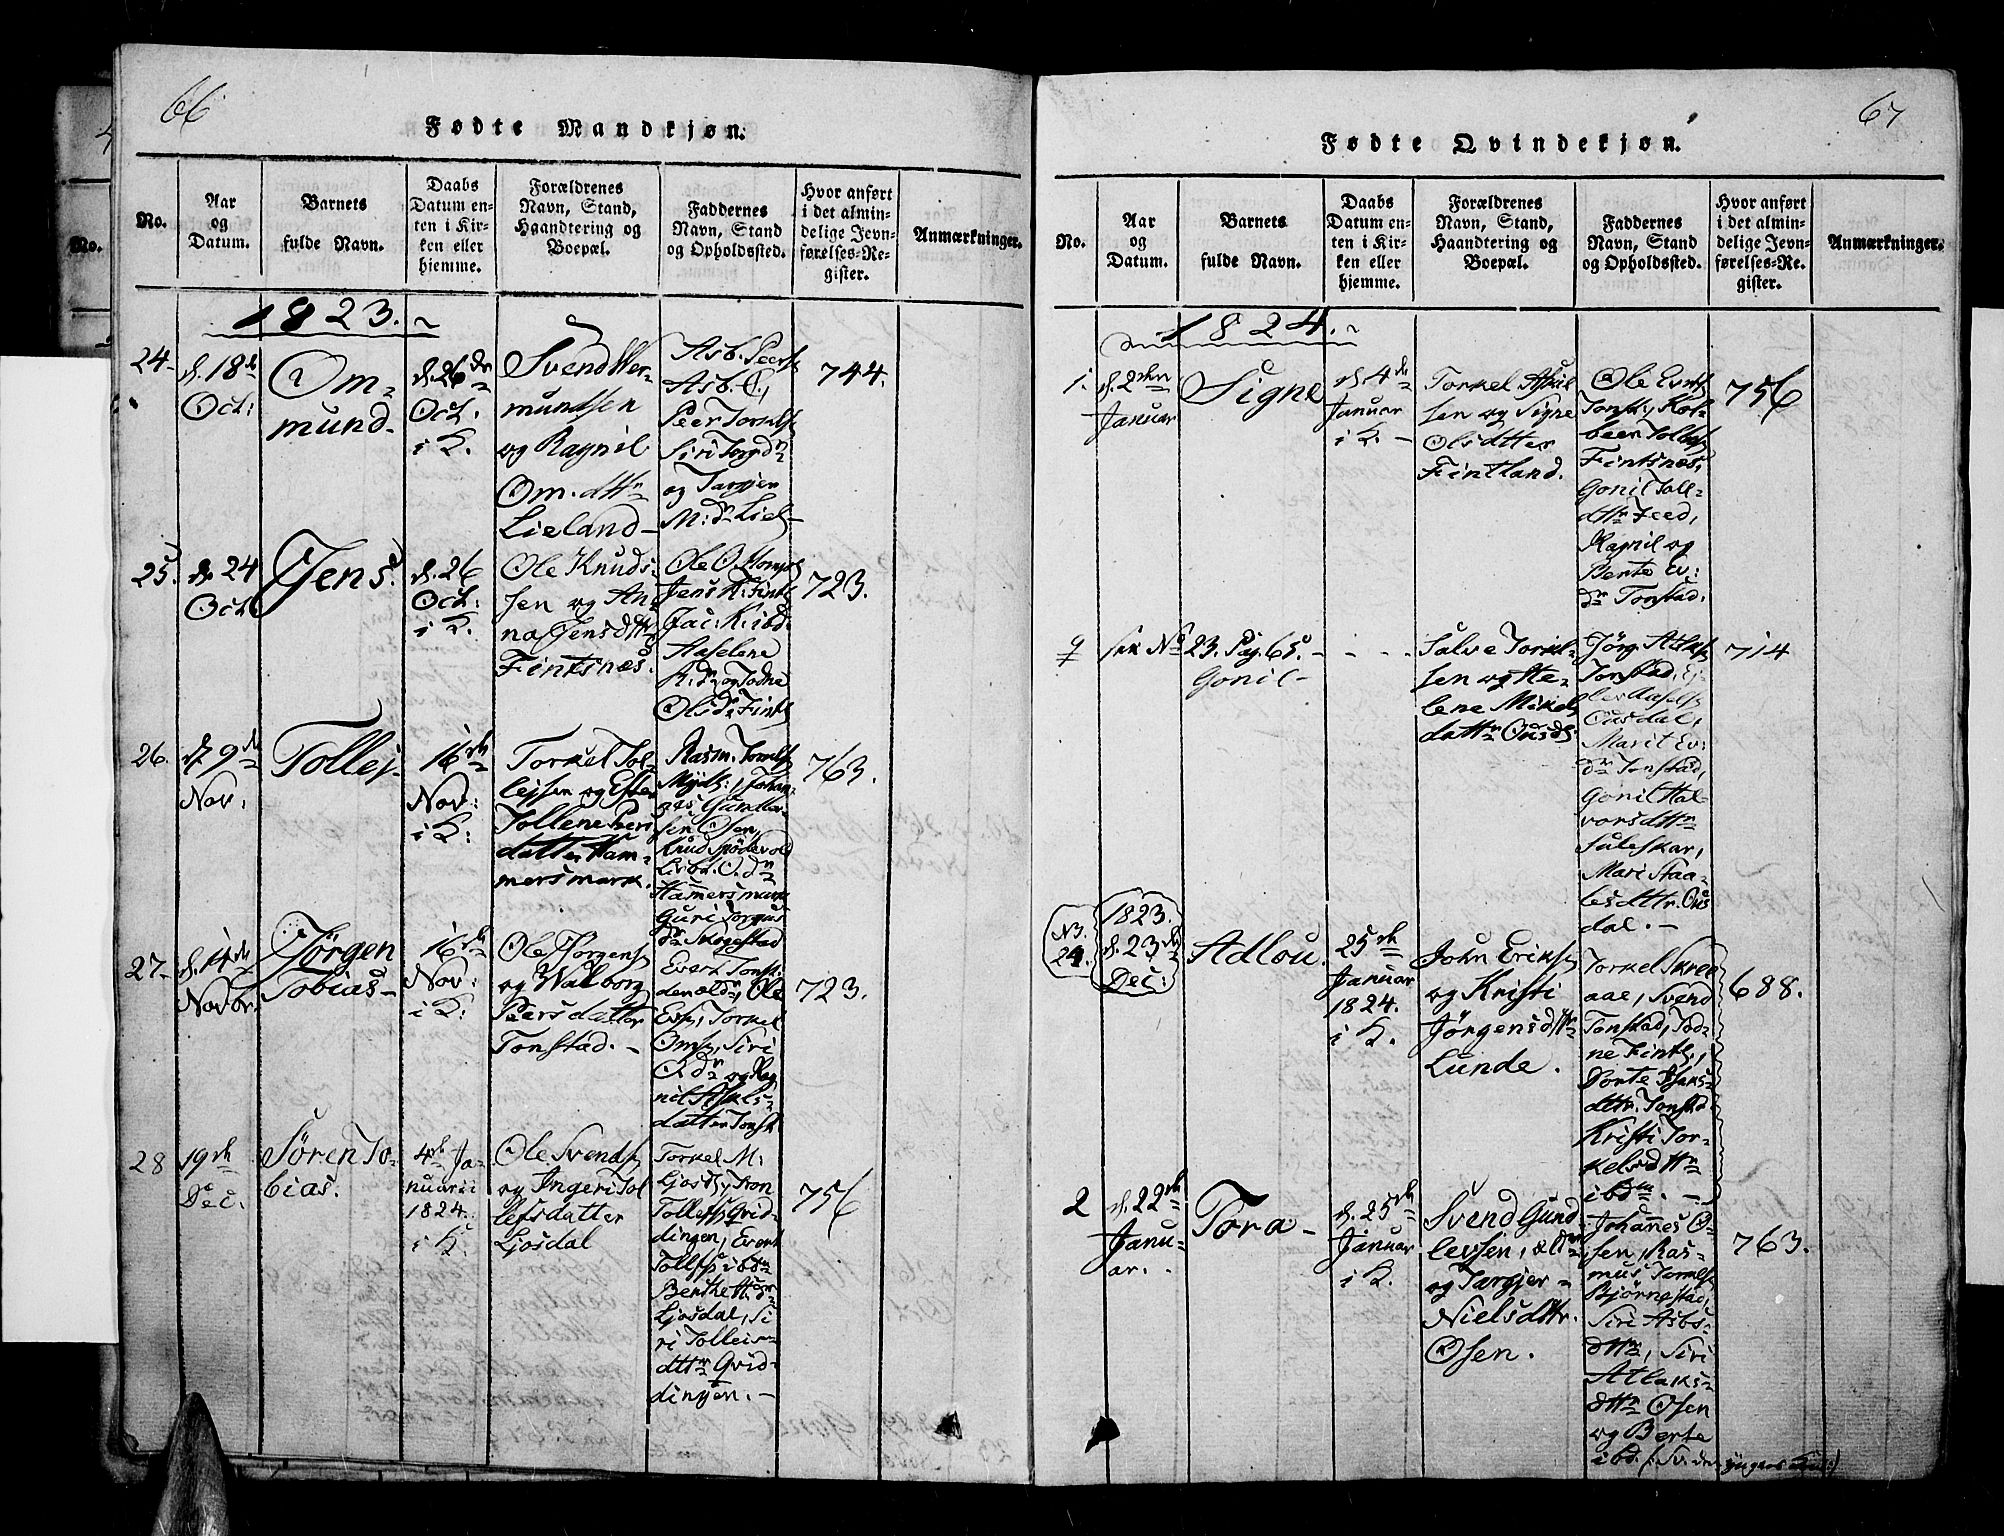 66
Fødte Mandkjøn.
No.
Aar
og
Datum.
Barnets
fulde Navn.
Daabs
Datum en-
ten i Kir-
ken eller
hjemme.
Forældrenes
Navn, Stand,
Haandtering og
Boepæl.
Faddernes
Navn, Stand
og Opholdssted.
Hvor anført
i det almin-
delige Jevn-
førelses-Re-
gister.
Anmærkninger.
1823.
24.
d. 18de
Oct:
Om-
mund.
d. 26de
Oct.
i K.
Svend Wer-
mundsen
og Ragnil
Om. dttr
Lieland
Asb. Peers
Asb. O,
Peer Torkels
Siri Torgdr
og Targjer
M: dr Liel-
744.
25.
d. 24
Oct.
Jens.
d. 26
Oct:
i K.
Ole Knuds-
sen og An-
na Jensdttr
Fintsnæs.
Ole O.
Jens K: Fints
Jac: K. ibd:
Aaselene
K: dr og Todne
Olsdr Fints
723.
26.
d. 9de
Nov:
Tollej-
16de
Nov:
i K:
Torkel Tol-
lejsen og Ester
Tollene Peers
datter Ham-
mersmark.
Rasm. Tormss
Johan-
nes Gundler
sen Osen,
Knud Spødevold
Livbr. O. dr
Hammersmark
Guri Torgus
dr Skregestad
763.
27.
d. 14de
Novbr.
Jørgen
Tobias-
16de
Nov:
i K:
Ole Jørgens
og Walborg
Peersdatter
Tonstad.-
Evert Tonst.
den ældr, Ole
Evs, Torkel
Oms, Siri
O. dr og Rag-
nil Askels-
datter Tonst.
723.
28
19de
Dec.
Søren To-
bias.
4de Ja-
nuarii
1824.
i K:
Ole Svends
og Ingeri Tol
lefsdatter
Ljosdal
Torkel M:
Ljosds, Tron
Tollefs Grid-
dingen, Evert
Tollfs ibd
Ljosdal, Si-
ri Tolleis-
dttr Grid-
dingen.-
756
67
Fødte Qvindekjøn.
No.
Aar
og
Datum.
Barnets
fulde Navn.
Daabs
Datum en-
ten i Kir-
ken eller
hjemme.
Forældrenes
Navn, Stand,
Haandtering og
Boepæl.
Faddernes
Navn, Stand
og Opholdssted.
Hvor anført
i det almin-
delige Jevn-
førelses-Re-
gister.
Anmærkninger.
1824.
1.
d. 2den
Januar
Signe
d. 4de
Januar
i K. -
Torkel Askil
sen og Signe
Olsdtter
Fintland.
Ole Evnts
Tonst, Kol-
been Tolles
Fintsnæs,
Gonil Toll-
dttr Feed,
Ragnil og
Bente Ev:
dr Tonstad.
756
see No 23. Pag. 65.
Gonil-
Salve Torkel-
sen og He-
lene Mikels
dattr Ousd:
Jørg. Atlaks
Tonstad,
Ousdal,
Marit Ev:
dr Tonstad,
Gonil Hal-
vorsdttr
Suleskar,
Mari Staa-
lesdttr. Ous-
dal.-
714
NB.
24.
1823.
d. 23de
Dec:
Adlou.
25de
Januar
1824.
i K.
John Eriks
og Kristi
Jørgensdttr
Lunde.
Torkel Skree
aae, Svend
Tonstad, Tod-
ne Fints,
Dorte
dttr. Tonstd
Kristi Tor-
kelsdttr
ibdm.-
688.
2
d. 22de
Janu-
ar.
Tora-
d. 25de
Januar
i K.
Svend Gund
levsen, ældr
og Targjer
Nielsdttr.
Osen.
Johannes O-
sen, Ras-
mus Tormss
Bjørnestad,
Siri Asbs-
dttr, Siri
Atlaks-
dttr Osen
og Berte
ibd.
763.